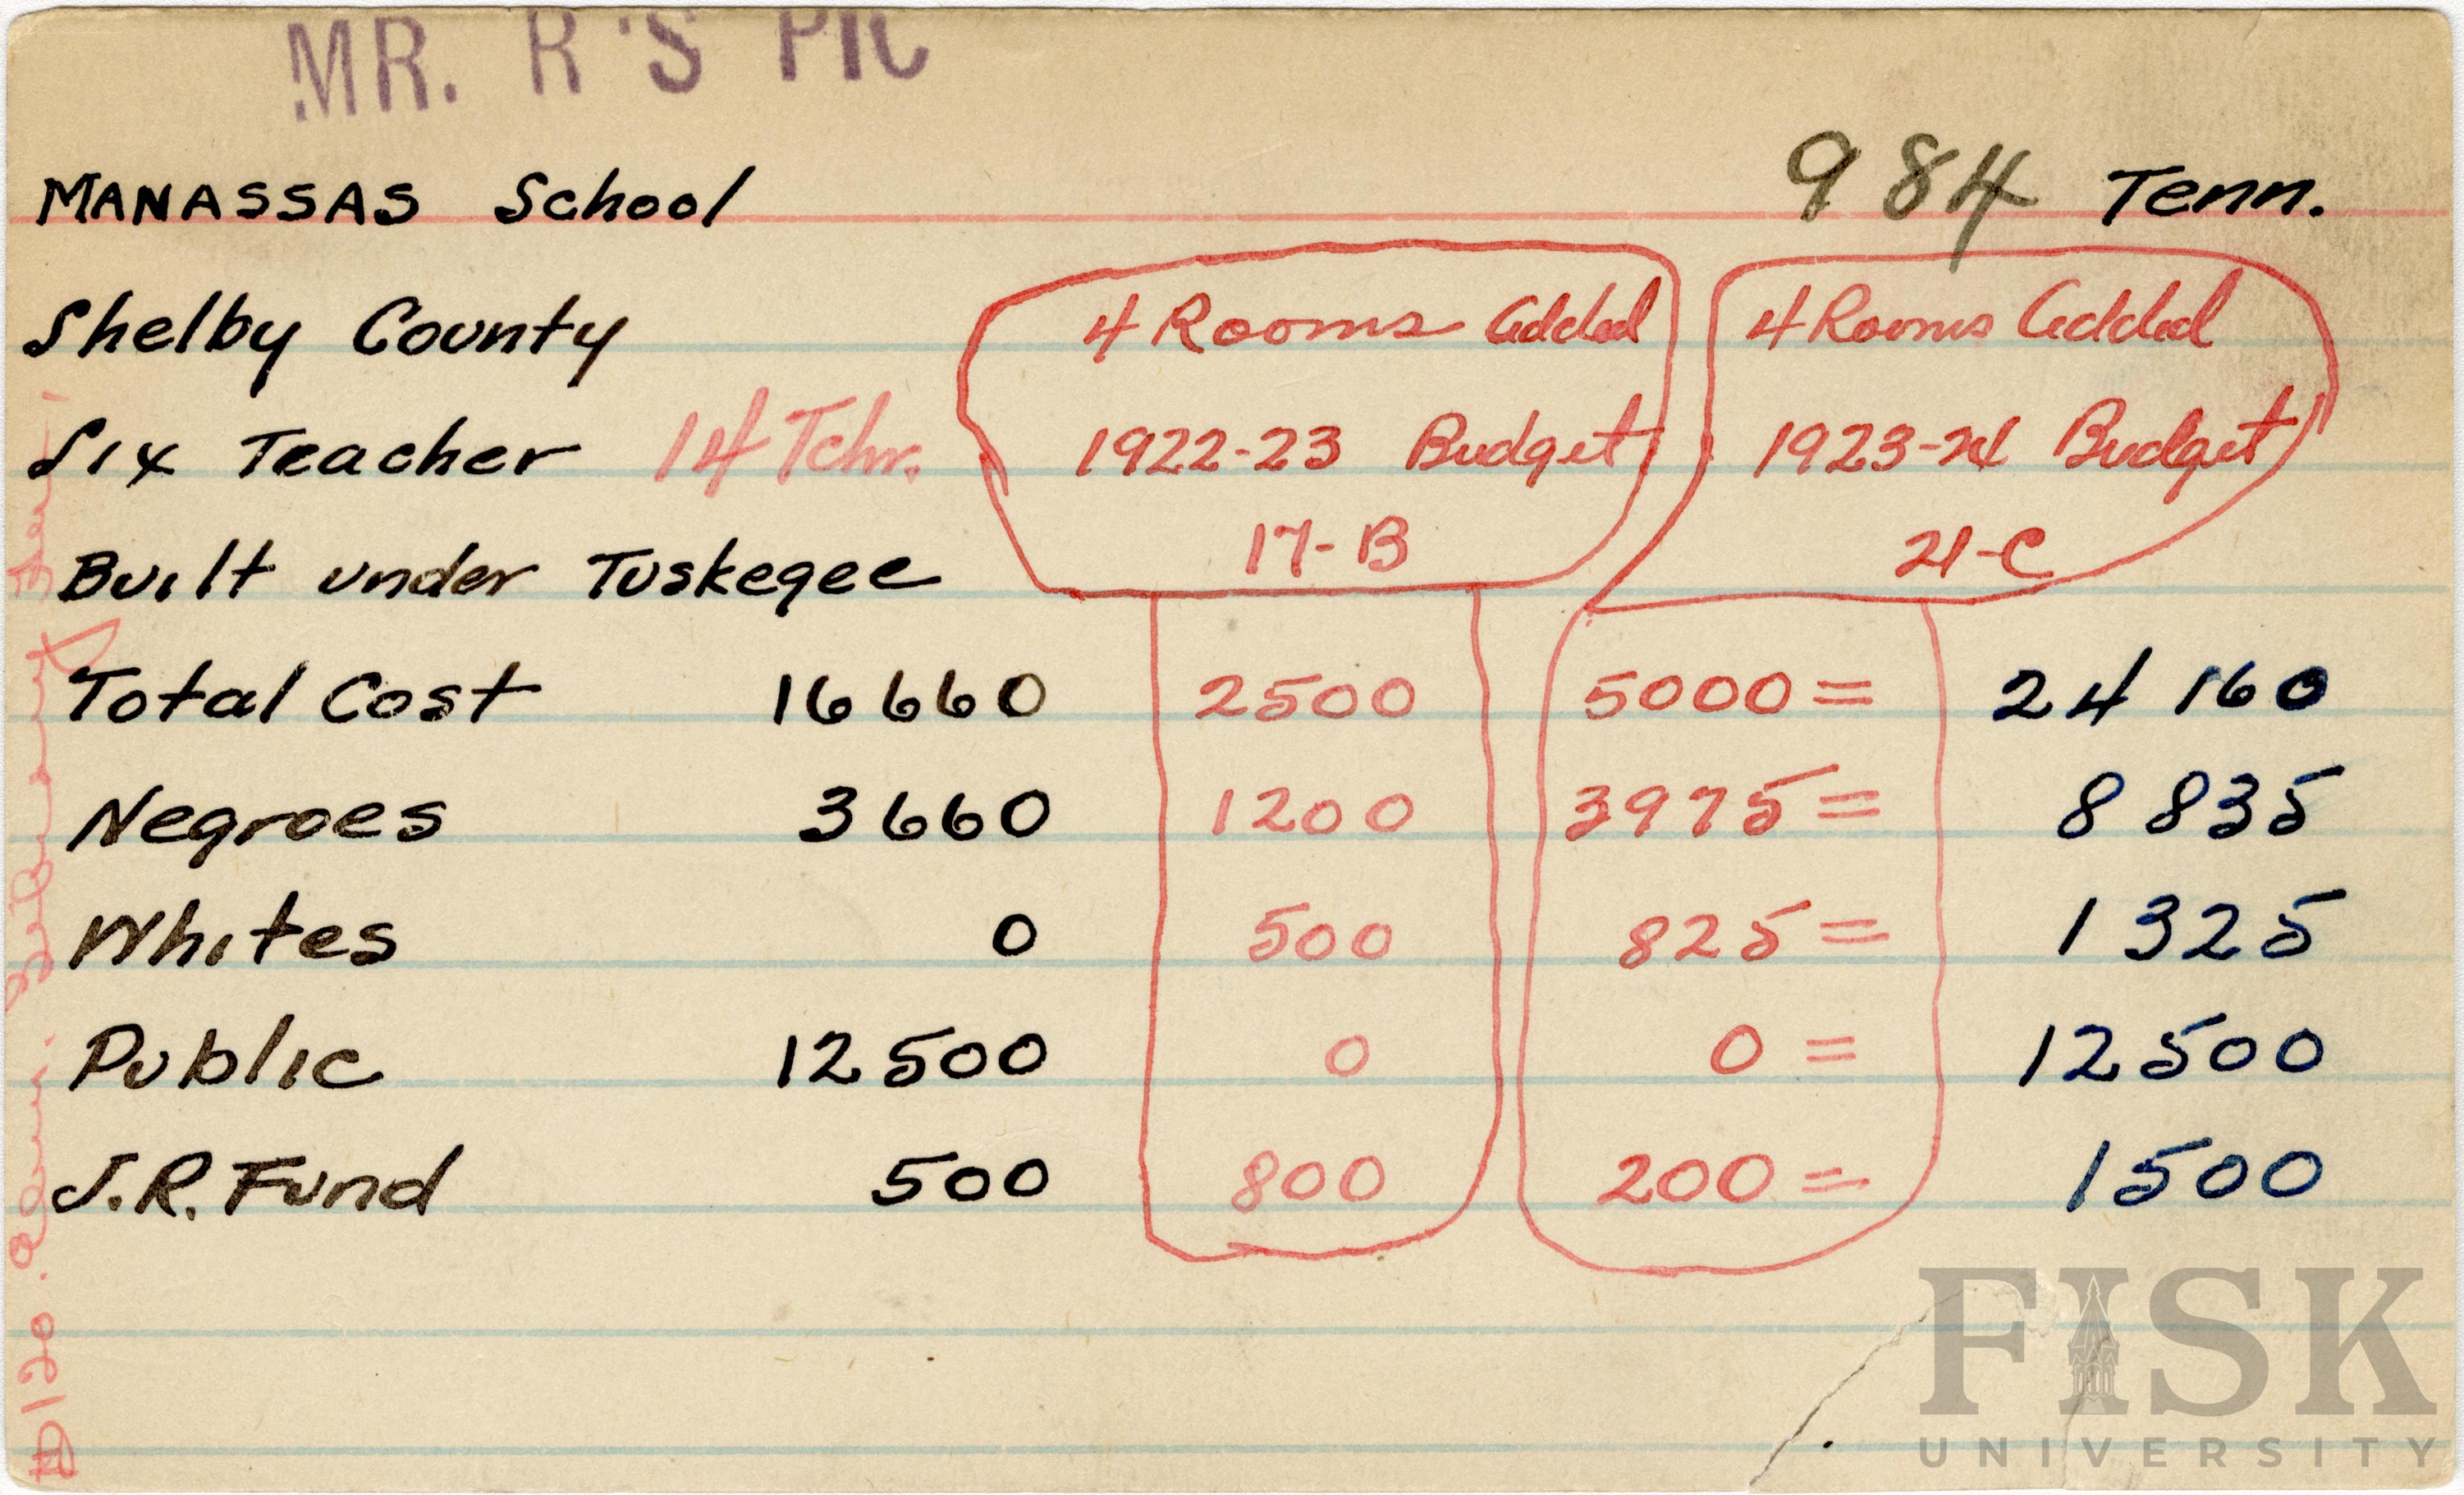 MR. R'S PIC
MANASSAS School 984 Tenn.
Shelby County 4 Rooms Added 4 Rooms Added
Six Teacher 14 Tchr. 1922-23 Budget 1923-24 Budget
Built under Tuskegee 17-B 21-C
Total Cost 16660 2500 5000 = 24160
Negroes 3660 1200 3975 = 8835
Whites 0 500 825 = 1325
Public 12500 0 0 = 12500
J.R. Fund 500 800 200 = 1500
$120.
FISK
UNIVERSITY